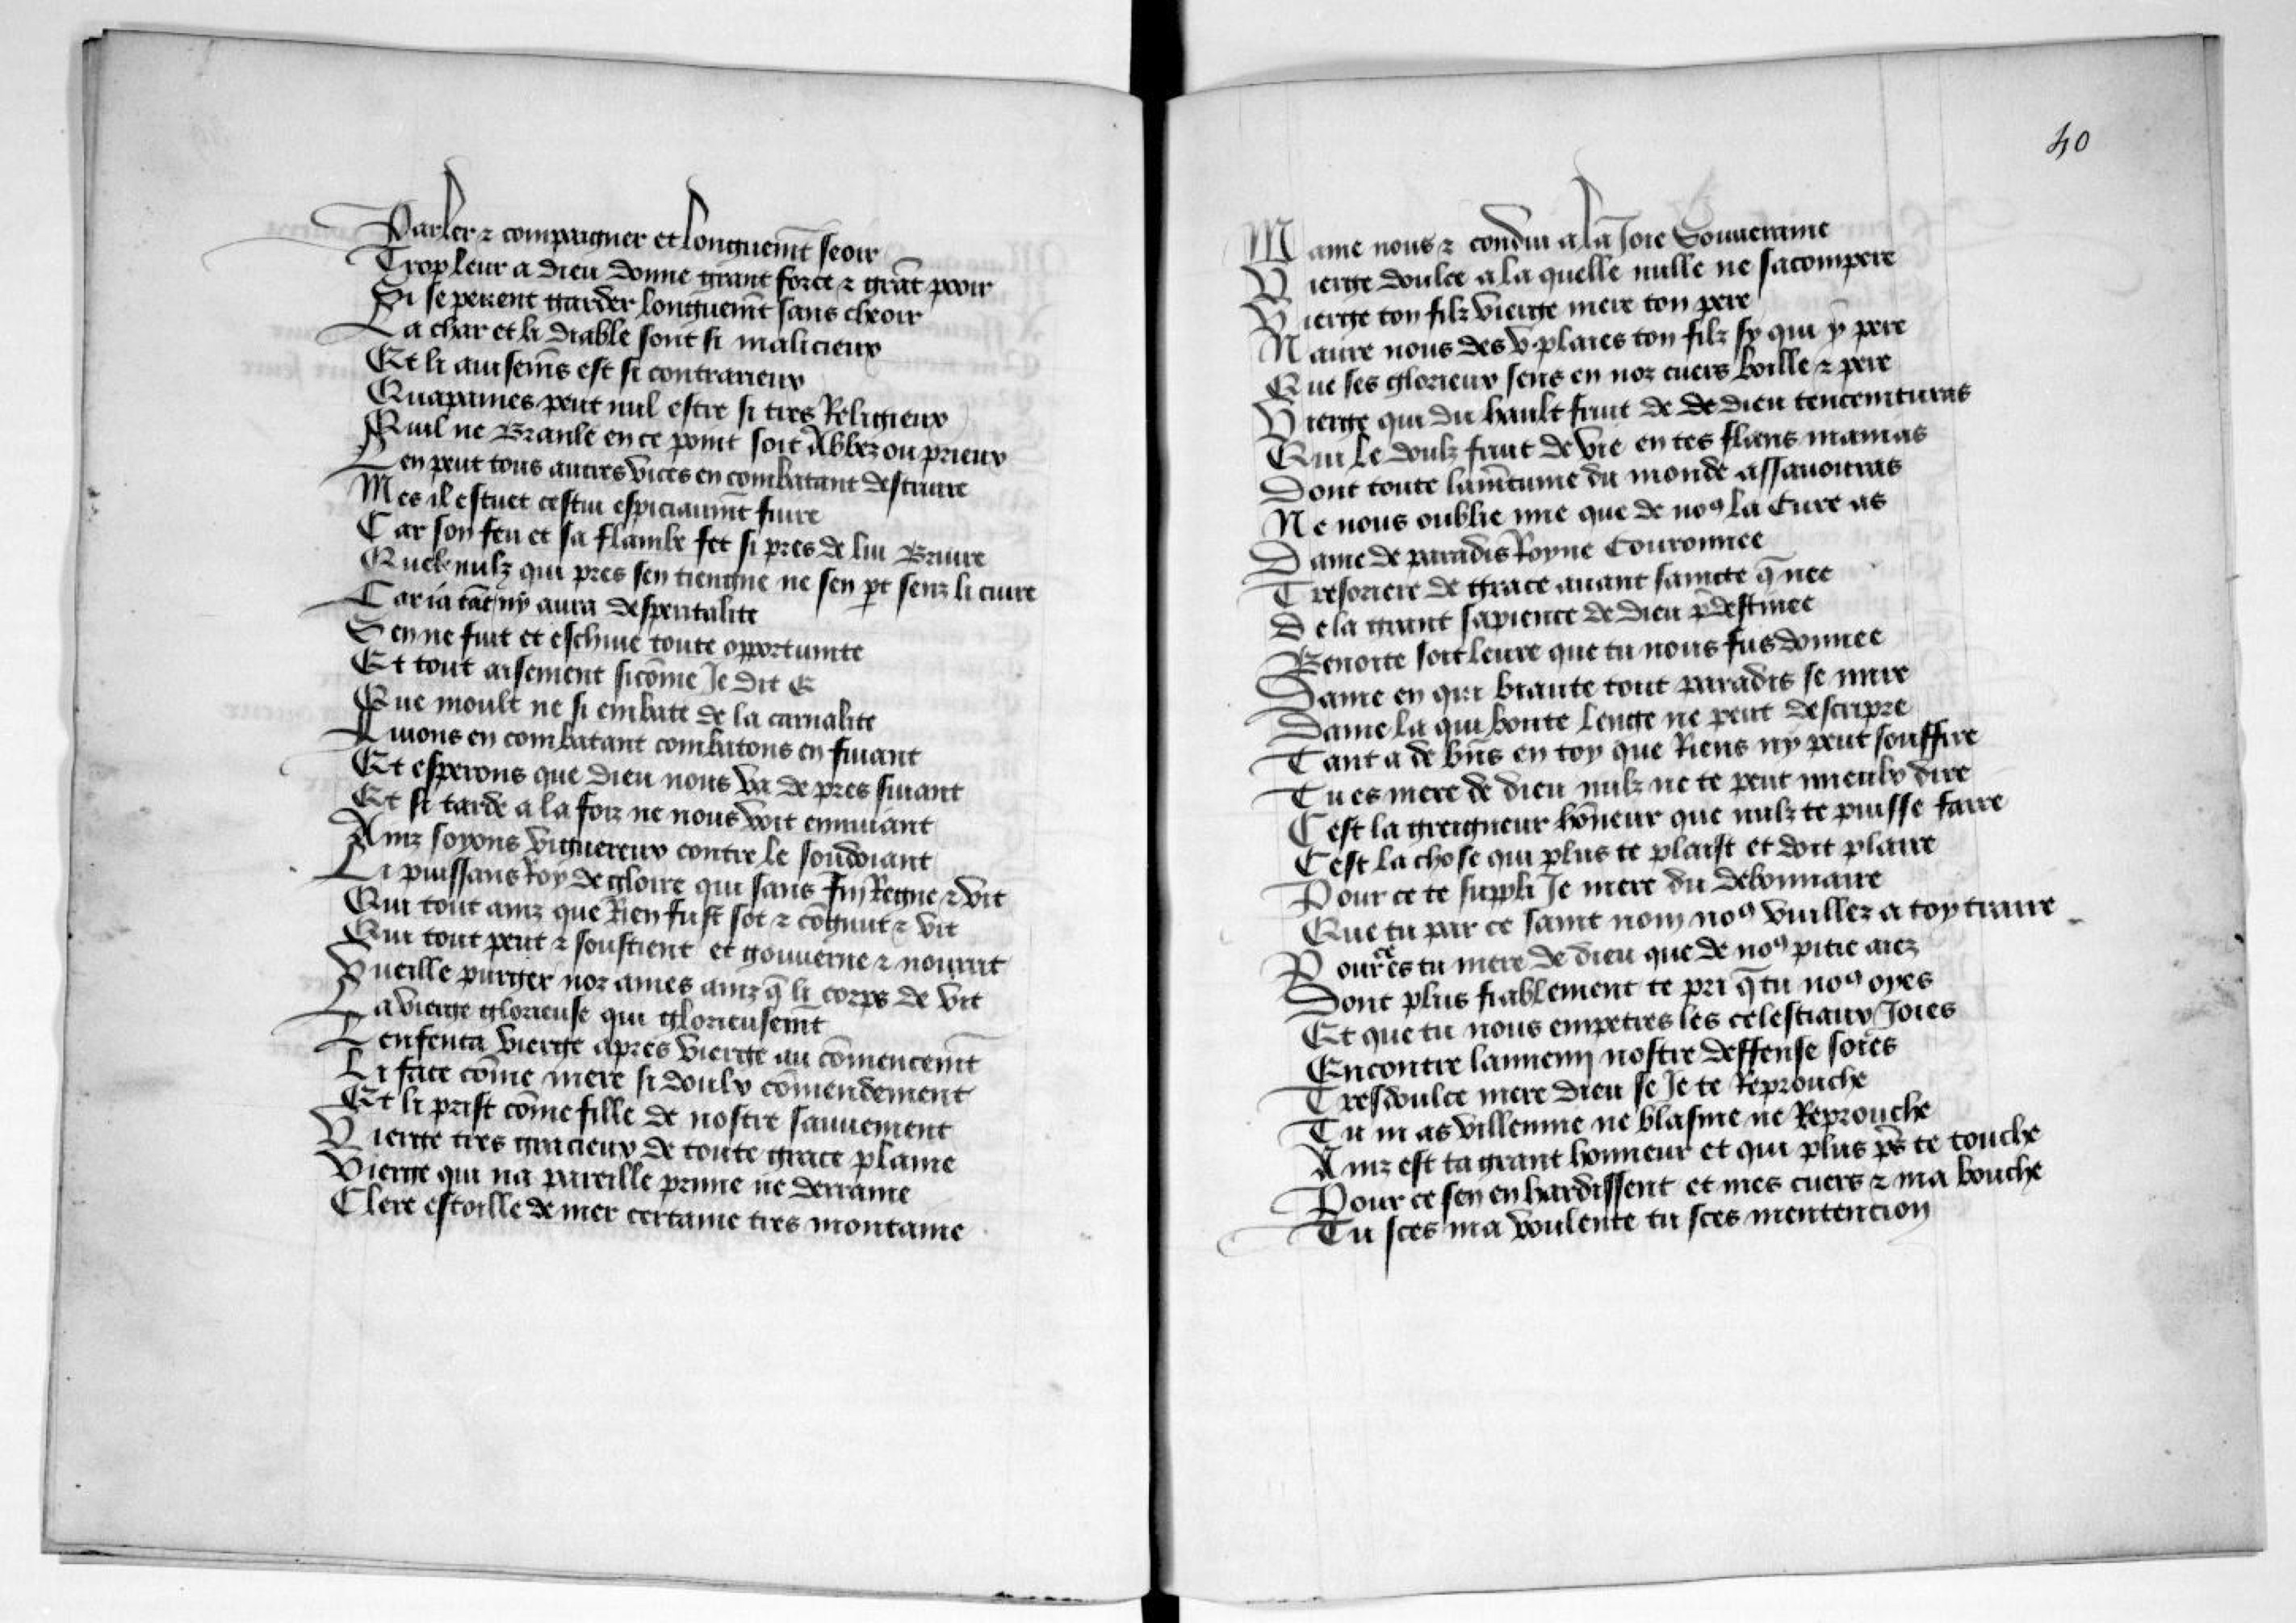 Parler ⁊ compaigner et longuem̄t seoir
Trop leur a dieu donne grant force ⁊ grāt pooir
Si se peuent garder longuem̄t sans cheoir
La char et li diable sont si malicieux
Et li auisem̄s est si contrarieux
Quapaines peut nul estre si tres Religieux
Quil ne Branle en ce point soit Abbez ou prieux
Len peut tous autres vices en combatant destruire
Mes il estuet cestui espiciaum̄t fuire
Car son feu et sa flambe fet si pres de lui Bruire
Que nulz qui pres sen tiengne ne sen pt senz li cuire
Car ia tāt ny aura desperitalite
Sen ne fuit et eschiue toute opportunite
Et tout aisement sicōme Je dit e
Que moult ne si embate de la carnalite
Fuions en combatant combatons en fuiant
Et esperons que dieu nous va de pres suiant
Et se tarde a la foiz ne nous voit ennuiant
Ainz soyons viguereux contre le soudoiant
Li puissans Roy de gloire qui sans fin Regne ⁊ vit
Qui tout ainz que Rien fust sot ⁊ cōgnut ⁊ vit
Qui tout peut ⁊ soustient et gouuerne ⁊ nourrit
Vueille purger noz ames ainz q̄ li corps de vit
La vierge glorieuse qui glorieusem̄t
Lenfenta vierge apres vierge au cōmencem̄t
Li face cōme mere si doulx cōmendement
Et li prist cōme fille de nostre sauuement
Vierge tres gracieux de toute grace plaine
Vierge qui na pareille prime ne derraine
Clere estoille de mer certaine tres montaine
40
Maine nous ⁊ condui a la Joie Souueraine
Vierge doulce a la quelle nulle ne sacompere
Vierge ton filz vierge mere ton pere
Naure nous des v plaies ton filz sy qui y pere
Que ses glorieux sens en noz cuers boille ⁊ pere
Vierge qui du hault fruit de de dieu tencenturas
Qui le doulz fruit de vie en tes flans mainas
Dont toute lam̄tume du monde assauouras
Ne nous oublie mie que de noꝰ la Cure as
Dame de paradis Royne Couronnee
Tresoriere de grace auant saincte q̄ nee
De la grant sapience de dieu p̄destinee
Benoite soit leure que tu nous fus donnee
Dame en qui biaute tout paradis se mire
Dame la qui bonte lenge ne peut descripre
Tant a de bn̄s en toy que Riens ny peut souffire
Tu es mere de dieu nulz ne te peut mieulx dire
Cest la greigneur hōneur que nulz te puisse faire
Cest la chose qui plus te plaist et doit plaire
Pour ce te suppli Je mere du debonnaire
Que tu par ce saint nom noꝰ vuillez a toy traire
Pour ce es tu mere de dieu que de noꝰ pitie aiez
Dont plus fiablement te pri q̄ tu noꝰ oyes
Et que tu nous empetres les celestiaux Joies
Encontre lannemy nostre deffense soies
Tresdoulce mere dieu se Je te Reprouche
Tu ni as villennie ne blasme ne Reprouche
Ainz est ta grant honneur et qui plus pres te touche
Pour ce sen enhardissent et mes cuers ⁊ ma bouche
Tu sces ma voulente tu sces mentencion